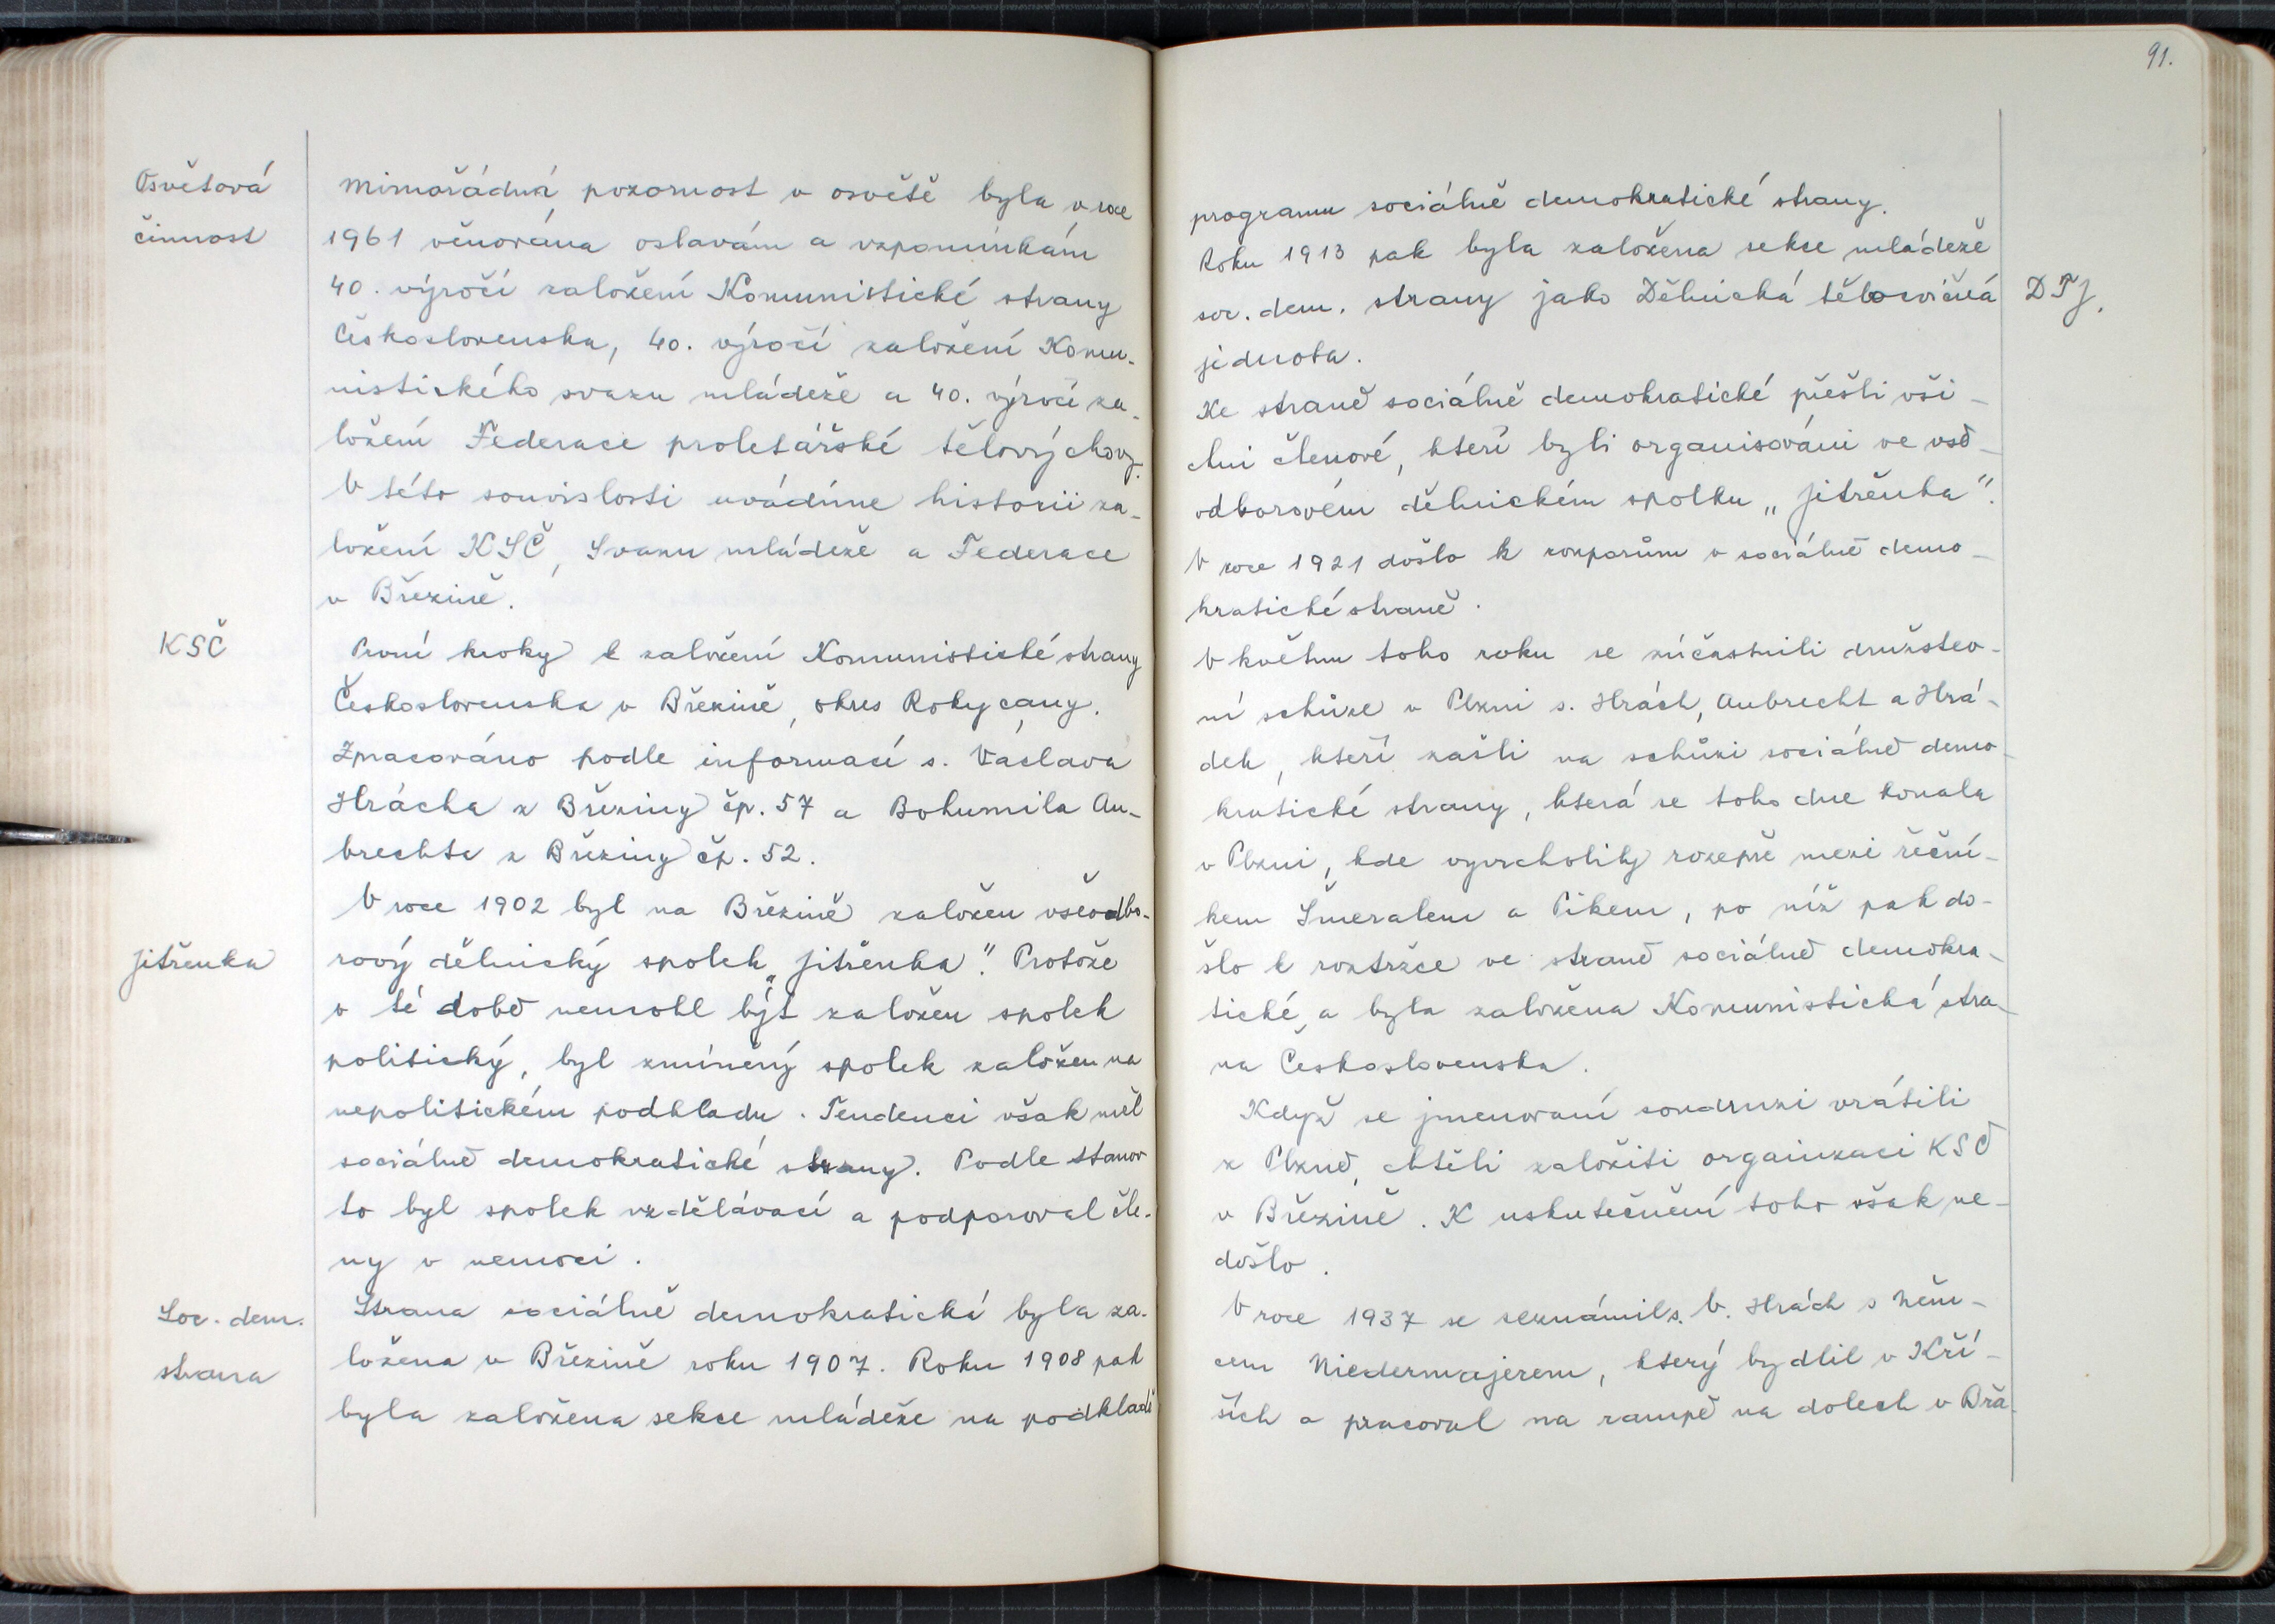 Osvětová
činnost
Mimořádná pozornost v osvětě byla v roce
1961 věnována oslavám a vzpomínkám
40. výročí založení Komunistické strany
Československa, 40. výročí založení Komu-
nistického svazu mládeže a 40. výročí za-
ložení Federace proletářské tělovýchovy.
V této souvislosti uvádíme historii za-
ložení KSČ, Svazu mládeže a Federace
v Březině.
KSČ
První kroky k založení Komunistické strany
Československa v Březině, okres Rokycany.
Zpracováno podle informací s. Václava
Hrácha z Březiny čp. 57 a Bohumila Au-
brechta z Březiny čp. 52.
V roce 1902 byl na Březině založen všeodbo-
Jitřenka
rový dělnický spolek „Jitřenka". Protože
v té době nemohl být založen spolek
politický, byl zmíněný spolek založen na
nepolitickém podkladu. Tendenci však měl
sociálně demokratické strany. Podle stanov
to byl spolek vzdělávací a podporoval čle-
ny v nemoci.
Soc. dem.
strana
Strana sociálně demokratická byla za-
ložena v Březině roku 1907. Roku 1908 pak
byla založena sekce mládeže na podkladě
91.
programu sociálně demokratické strany.
Roku 1913 pak byla založena sekce mládeže
soc. dem. strany jako Dělnická tělocvičná
DTJ.
jednota.
Ke straně sociálně demokratické přešli vši-
chni členové, kteří byli organisováni ve vše-
odborovém dělnickém spolku „Jitřenka".
V roce 1921 došlo k rozporům v sociálně demo-
kratické straně.
V květnu toho roku se zúčastnili družstev-
ní schůze v Plzni s. Hrách, Aubrecht a Hrá-
dek, kteří zašli na schůzi sociálně demo-
kratické strany, která se toho dne konala
v Plzni, kde vyvrcholily rozepře mezi řeční-
kem Šmeralem a Pikem, po níž pak do-
šlo k roztržce ve straně sociálně demokra-
tické, a byla založena Komunistická stra-
na Československa.
Když se jmenovaní soudruzi vrátili
z Plzně, chtěli založiti organizaci KSČ
v Březině. K uskutečnění toho však ne-
došlo.
V roce 1937 se seznámil s. V. Hrách s Něm-
cem Niedermajerem, který bydlil v Kří-
ších a pracoval na rampě na dolech v Břa-